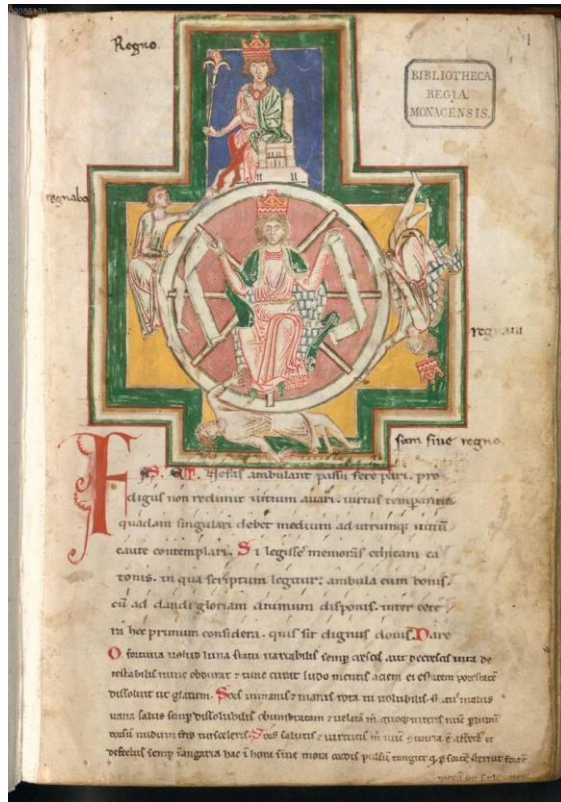 Regno
BIBLIOTHECA
REGIA
MONACENSIS.
regnabo
regnaui
sum sine regno
Fas nefas ambulant passu fere pari. pro
digus non redimit uitium auari. uirtus temperantia
quadam singulari debet medium ad utrumque uitiū
caute contemplari. Si legisse memoras ethicam ca
tonis. in qua scriptum legitur: ambula cum bonis.
cū ad dandi gloriam animum disponis. inter cete
ra hec primum considera. quis sit dignus donis. Dare
O fortuna uelud luna statu uariabilis semp crescis aut decrescis uita de
testabilis nunc obdurat & tunc curat ludo mentis aciem egestatem potestatē
dissoluit ut glaciem. Sors inmanis & inanis rota tu uolubilis status malus
uana salus semp dissolubilis obumbratam & uelatam m quoq niteris nūc p ludum
dorsum nudum fero tui sceleris. Sors salutis & uirtutis m nūc ɔtraria ē affectꝰ
defectus semp ī angaria hac ī hora sine mora corde pulsū tangite